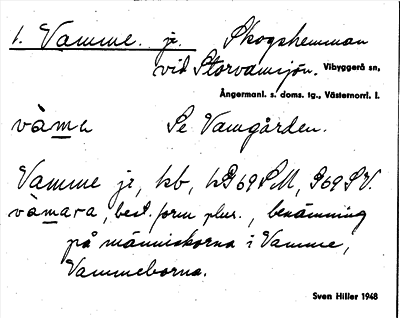 1. Vamme. je. Skogshemman
vid Storvamsjön. Vibyggerå sn,
Ångermanl. s. doms. tg., Västernorrl. l.
våma Se Vamgården.
Vamme je, kb, 69 SM, 969 SV.
våmara, best. form plur., benämning
på människorna i Vamme,
Vammeborna.
Sven Hiller 1948